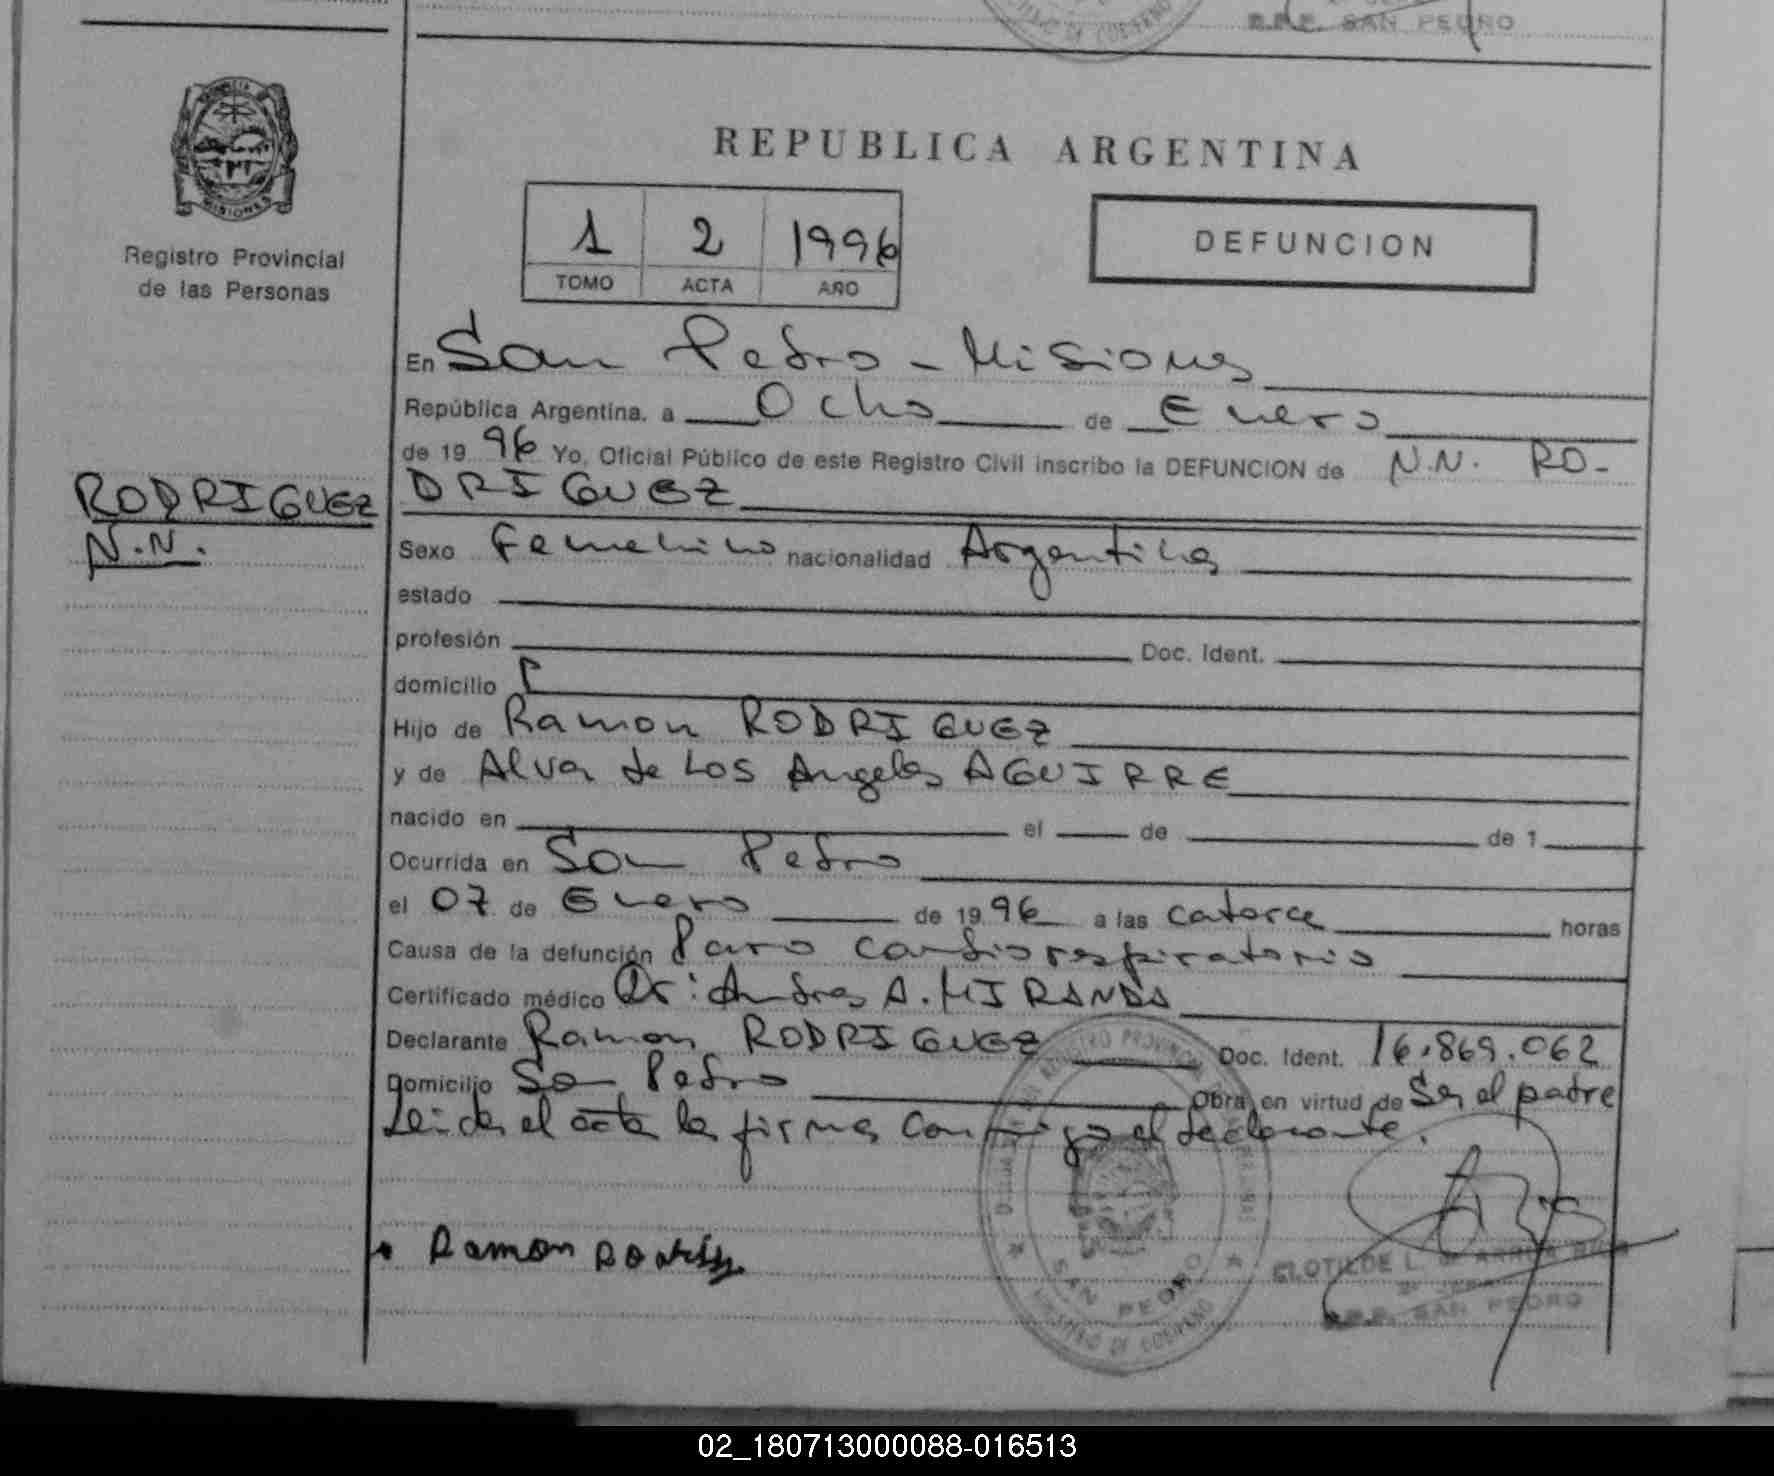 R.P.P. SAN PEDRO
MISIONES
Registro Provincial
de las Personas
REPUBLICA ARGENTINA
1 2 1996
TOMO ACTA AÑO
DEFUNCION
En San Pedro - Misiones
República Argentina, a Ocho de Enero
de 19 96 Yo, Oficial Público de este Registro Civil inscribo la DEFUNCION de N.N. RO-
RODRIGUEZ
N.N.
DRIGUEZ
Sexo Femenino nacionalidad Argentina
estado
profesión Doc. Ident.
domicilio
Hijo de Ramon RODRIGUEZ
y de Alva de Los Angeles AGUIRRE
nacido en el de de 1
Ocurrida en San Pedro
el 07 de Enero de 19 96 a las catorce horas
Causa de la defunción Paro cardiorespiratorio
Certificado médico Dr: Andres A. MIRANDA
Declarante Ramon RODRIGUEZ Doc. Ident. 16.869.062
Domicilio San Pedro Obra en virtud de Ser el padre
Leida el acta la firma conmigo el declarante.
Ramon
SAN PEDRO
MINISTERIO DE GOBIERNO
CLOTILDE L. de ARRUA
R.P.P. SAN PEDRO
02_180713000088-016513